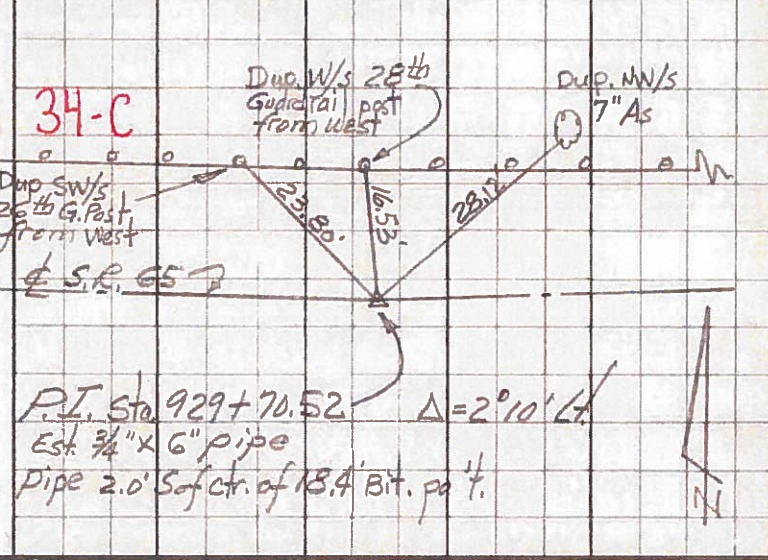 Dup. W/s 28th
Guardrail post
from West
Dup. NW/s
7" As
34-C
Dup. SW/s
26th G. Post
from West
23.80'
16.53'
28.12'
℄ S.R. 65
P.I. Sta. 929+70.52
Δ = 2°10' Lt.
Est. 3/4" x 6" pipe
Pipe 2.0' S of ctr. of 18.4' Bit. pa't.
N